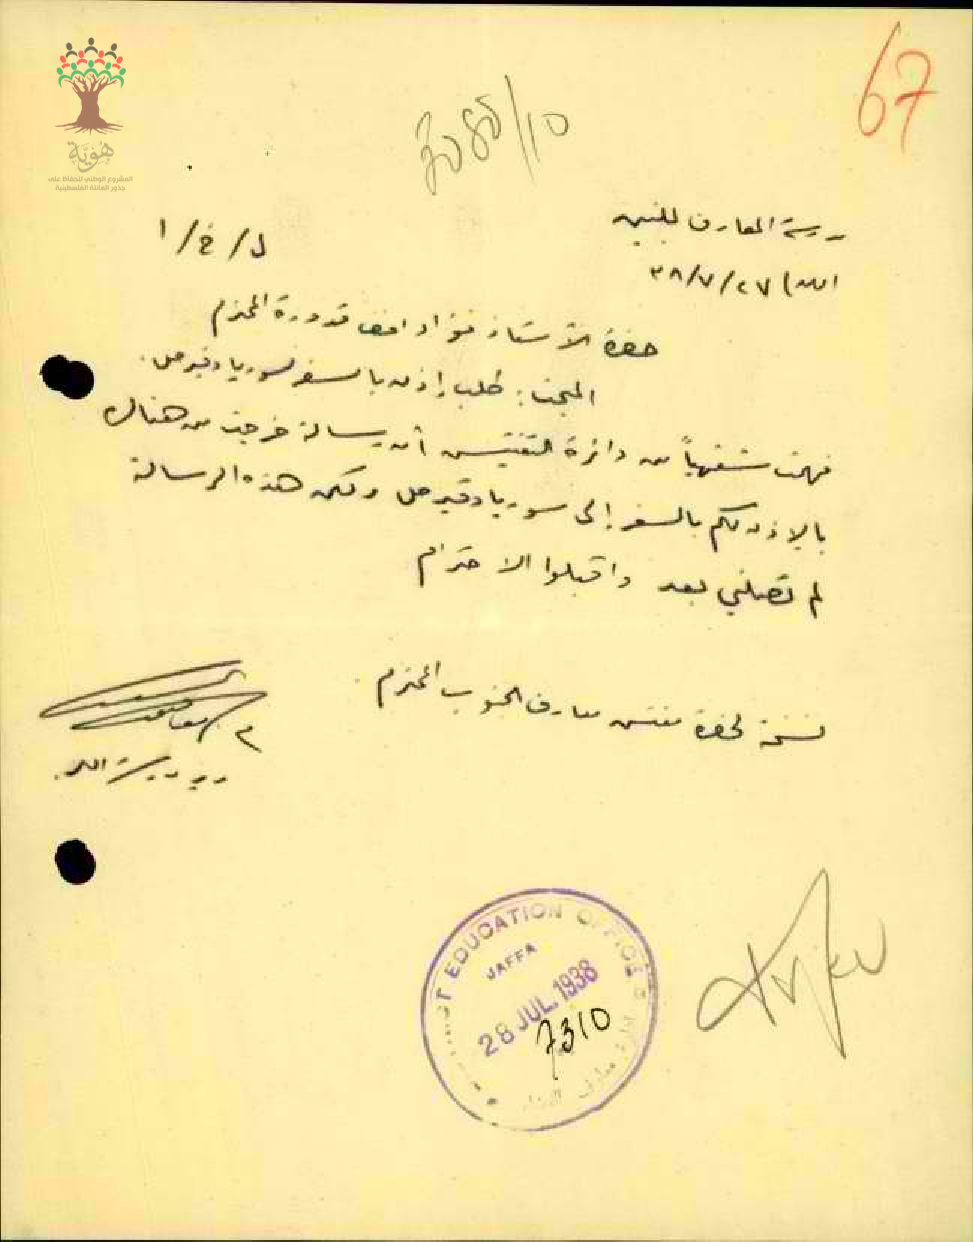 67
7085/10
هوية
المشروع الوطني للحفاظ على
جذور العائلة الفلسطينية
مدرسة المعارف للبنين
ل/خ/١
اللد) ٢٧/٧/٣٨
حضرة الأستاذ فؤاد افندي قدورة المحترم
المبحث: طلب إذن بالسفر لسوريا وقبرص.
فهمت شفهياً من دائرة التفتيش أن رسالة خرجت من هناك
بالإذن لكم بالسفر إلى سوريا وقبرص ولكن هذه الرسالة
لم تصلني بعد واقبلوا الاحترام
نسخة لحضرة مفتش معارف الجنوب المحترم
مدير مدرسة اللد.
EDUCATION OFFICE
JAFFA
28 JUL. 1938
7310
معارف اللواء